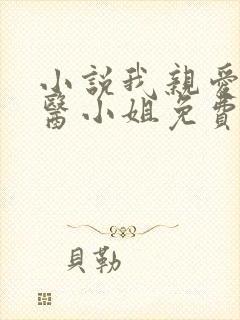 小說我親愛
醫小姐免費
貝勒